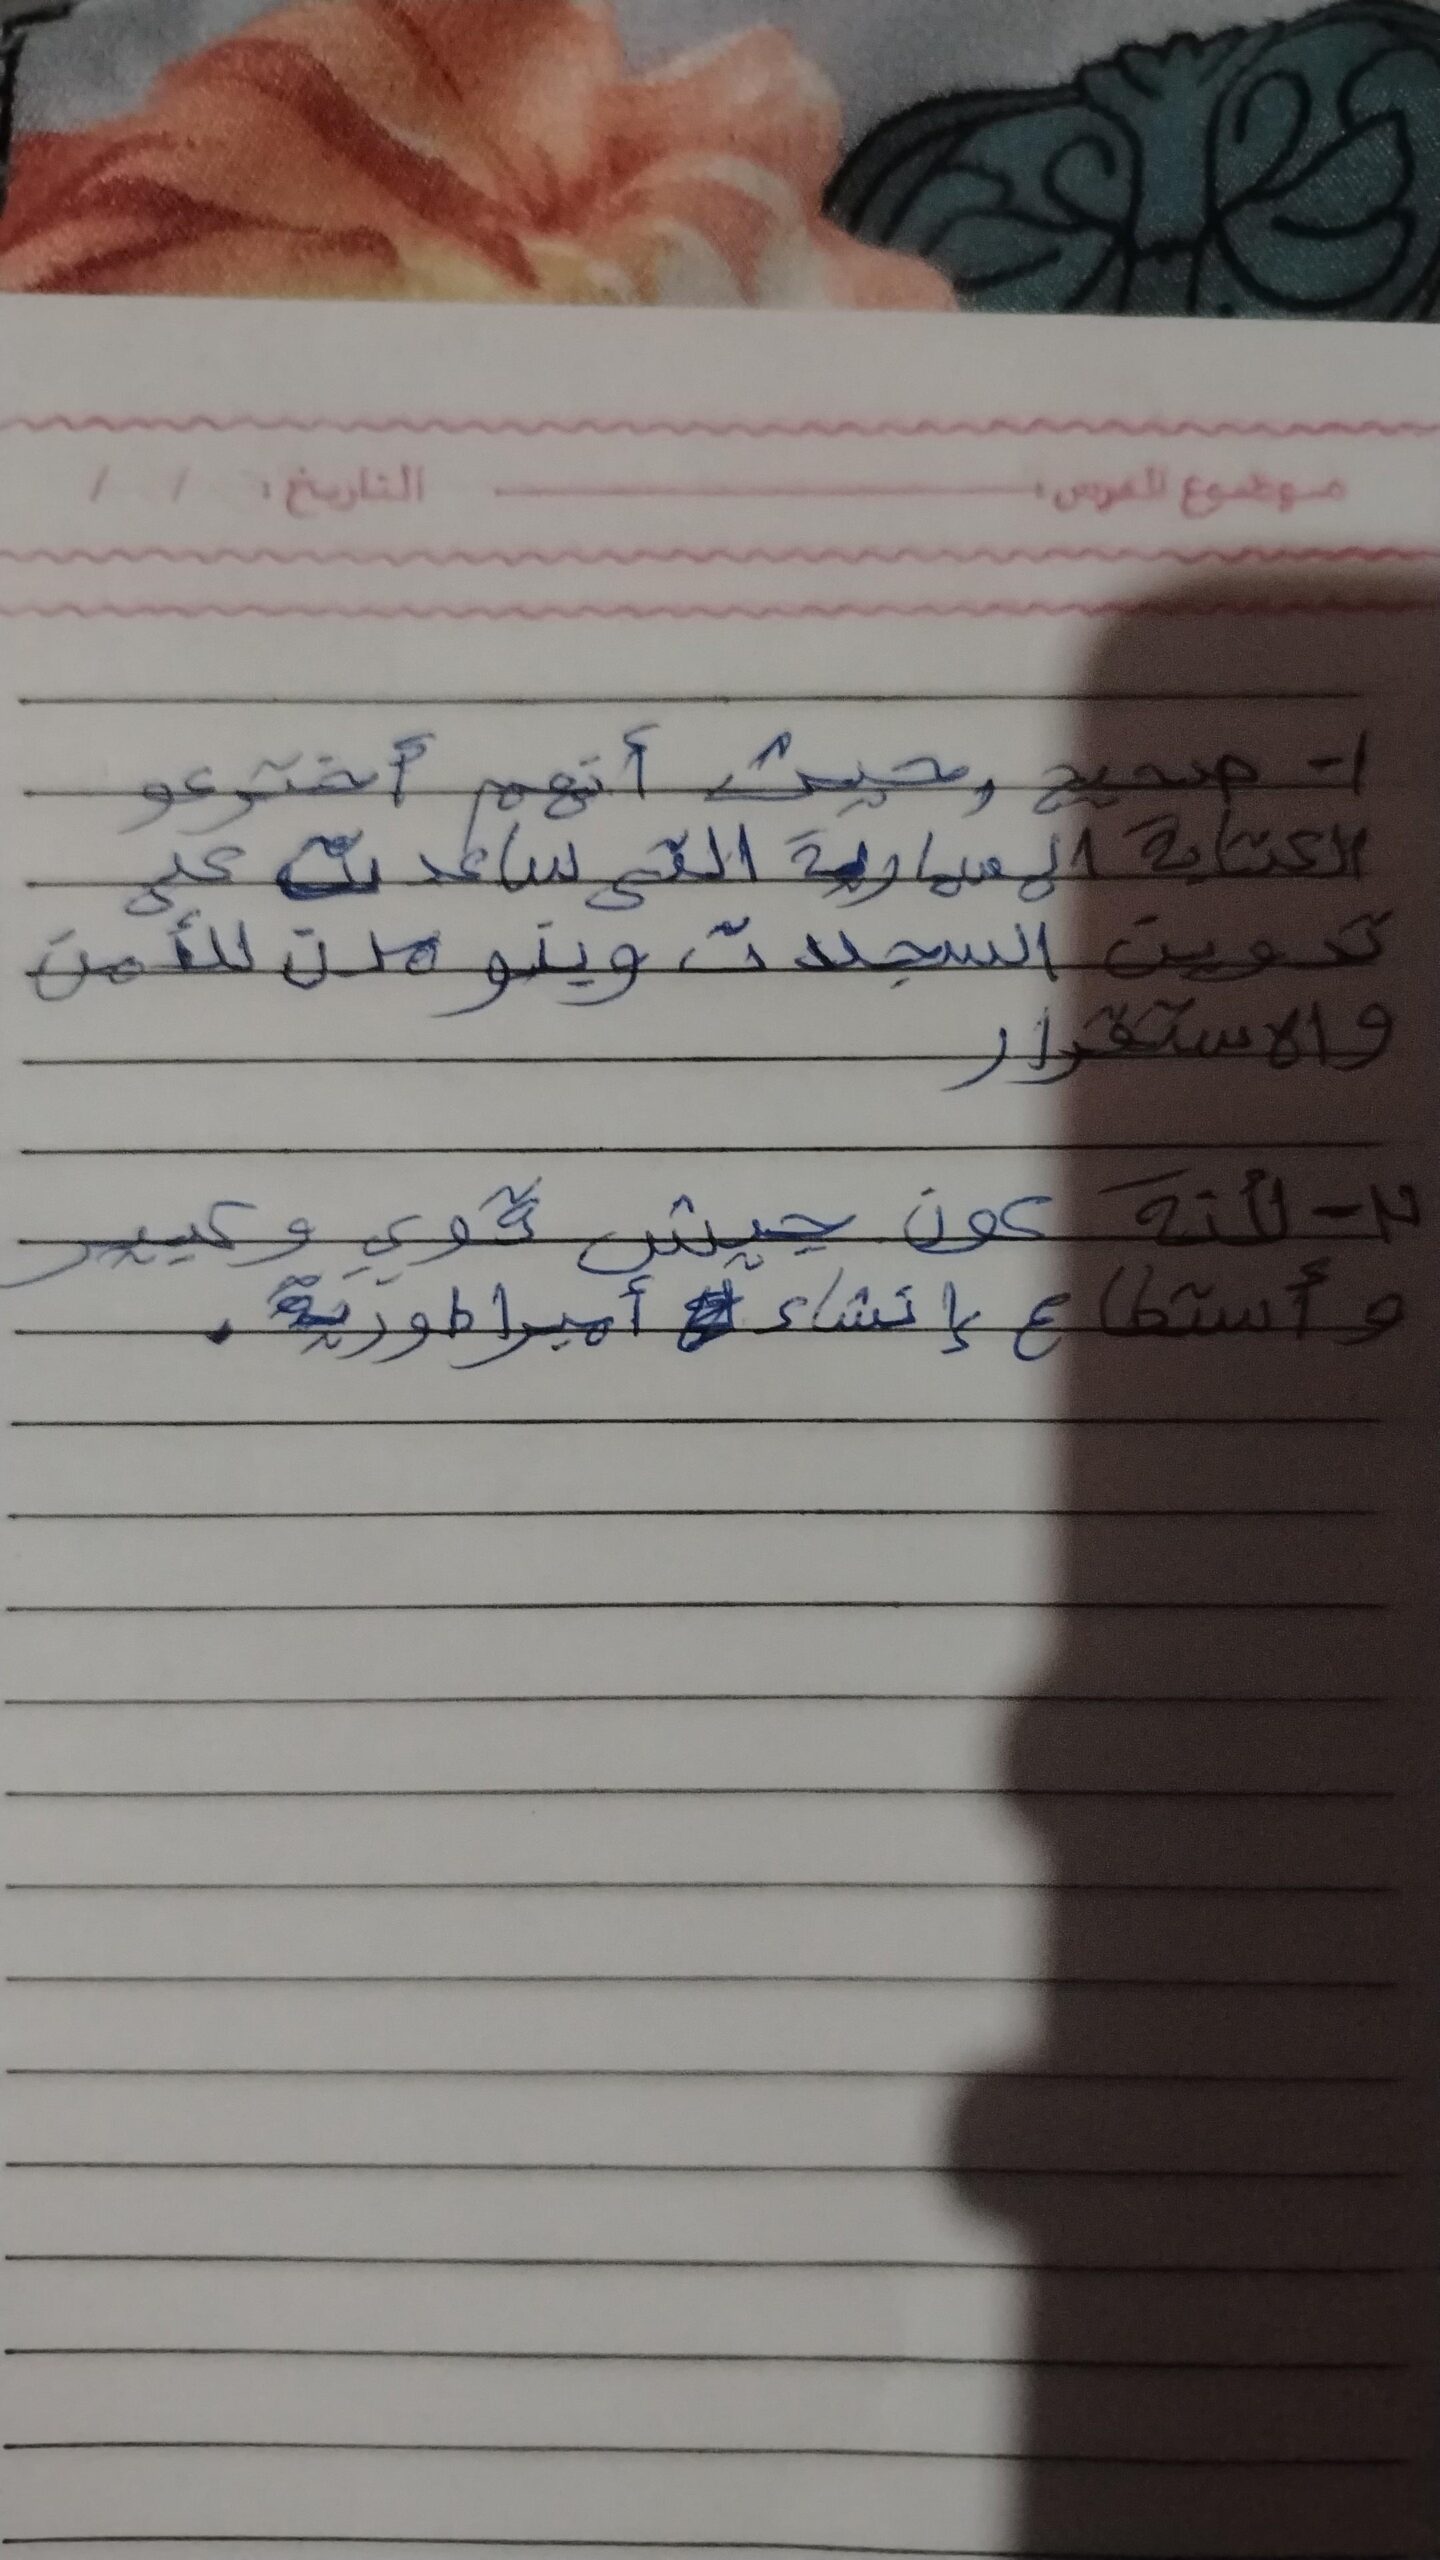 موضوع الدرس: التاريخ: / /
١- صحيح, حيث أنهم أخترعو
الكتابة المسمارية التي ساعدت على
تدوين السجلات وبنو مدن للأمن
والاستقرار
٢- لأنة كون جيش قوي وكبير
وأستطاع إنشاء أمبراطورية.